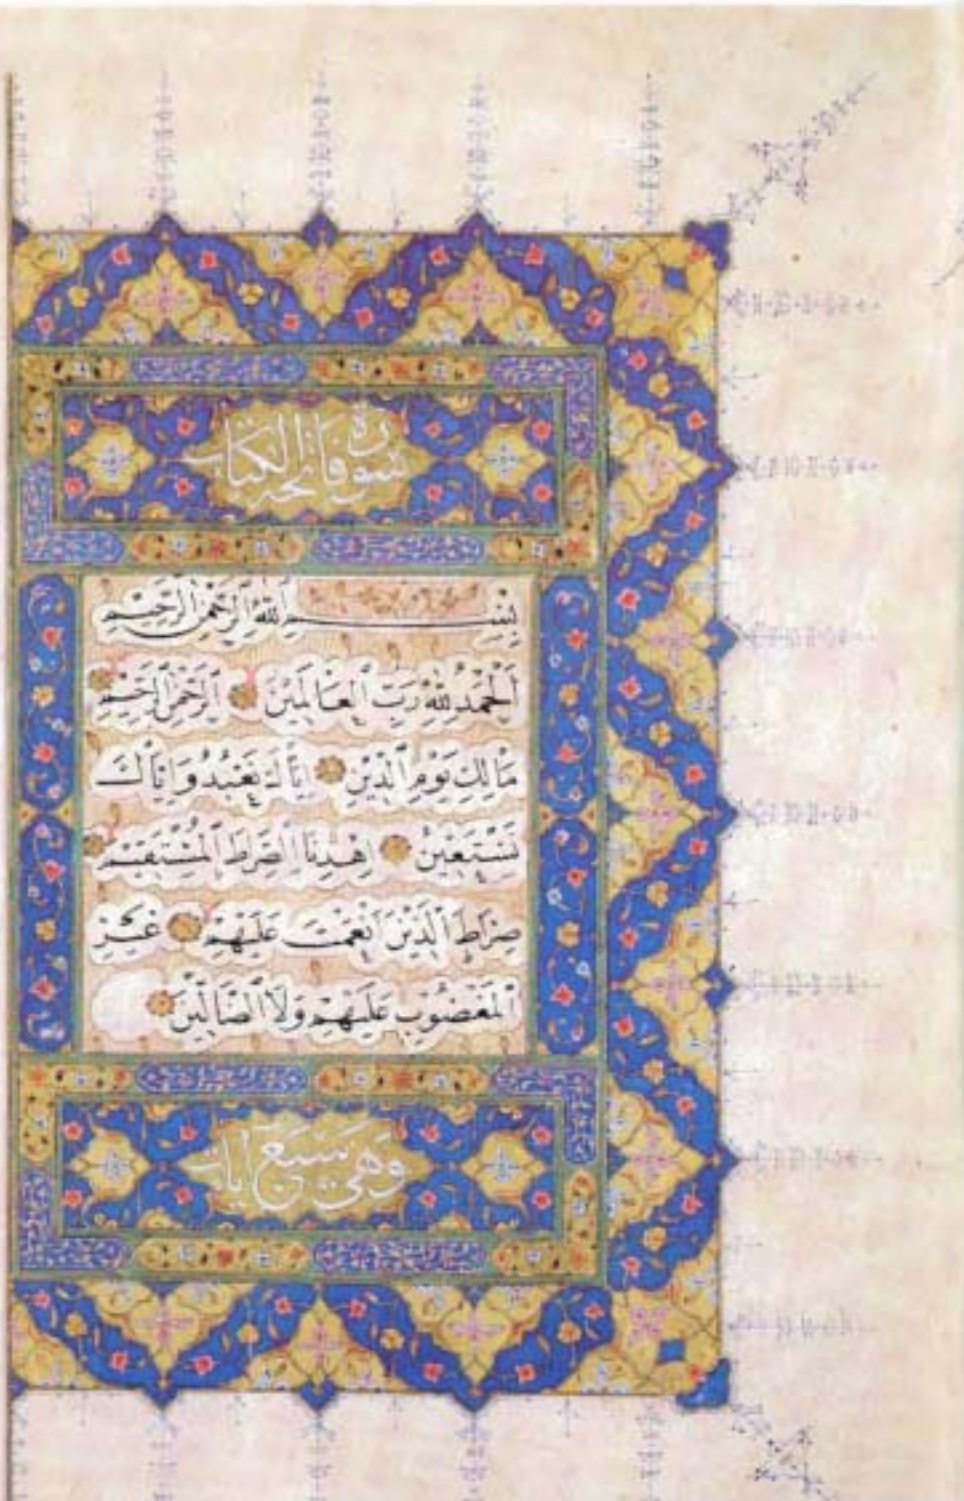 سورة فاتحة الكتاب
بِسْمِ اللّٰهِ الرَّحْمٰنِ الرَّحِيمِ
اَلْحَمْدُ لِلّٰهِ رَبِّ الْعَالَمِينَ الرَّحْمٰنِ الرَّحِيمِ
مَالِكِ يَوْمِ الدِّينِ اِيَّاكَ نَعْبُدُ وَاِيَّاكَ
نَسْتَعِينُ اِهْدِنَا الصِّرَاطَ الْمُسْتَقِيمَ
صِرَاطَ الَّذِينَ اَنْعَمْتَ عَلَيْهِمْ غَيْرِ
الْمَغْضُوبِ عَلَيْهِمْ وَلَا الضَّالِّينَ
وهي سبع ايات